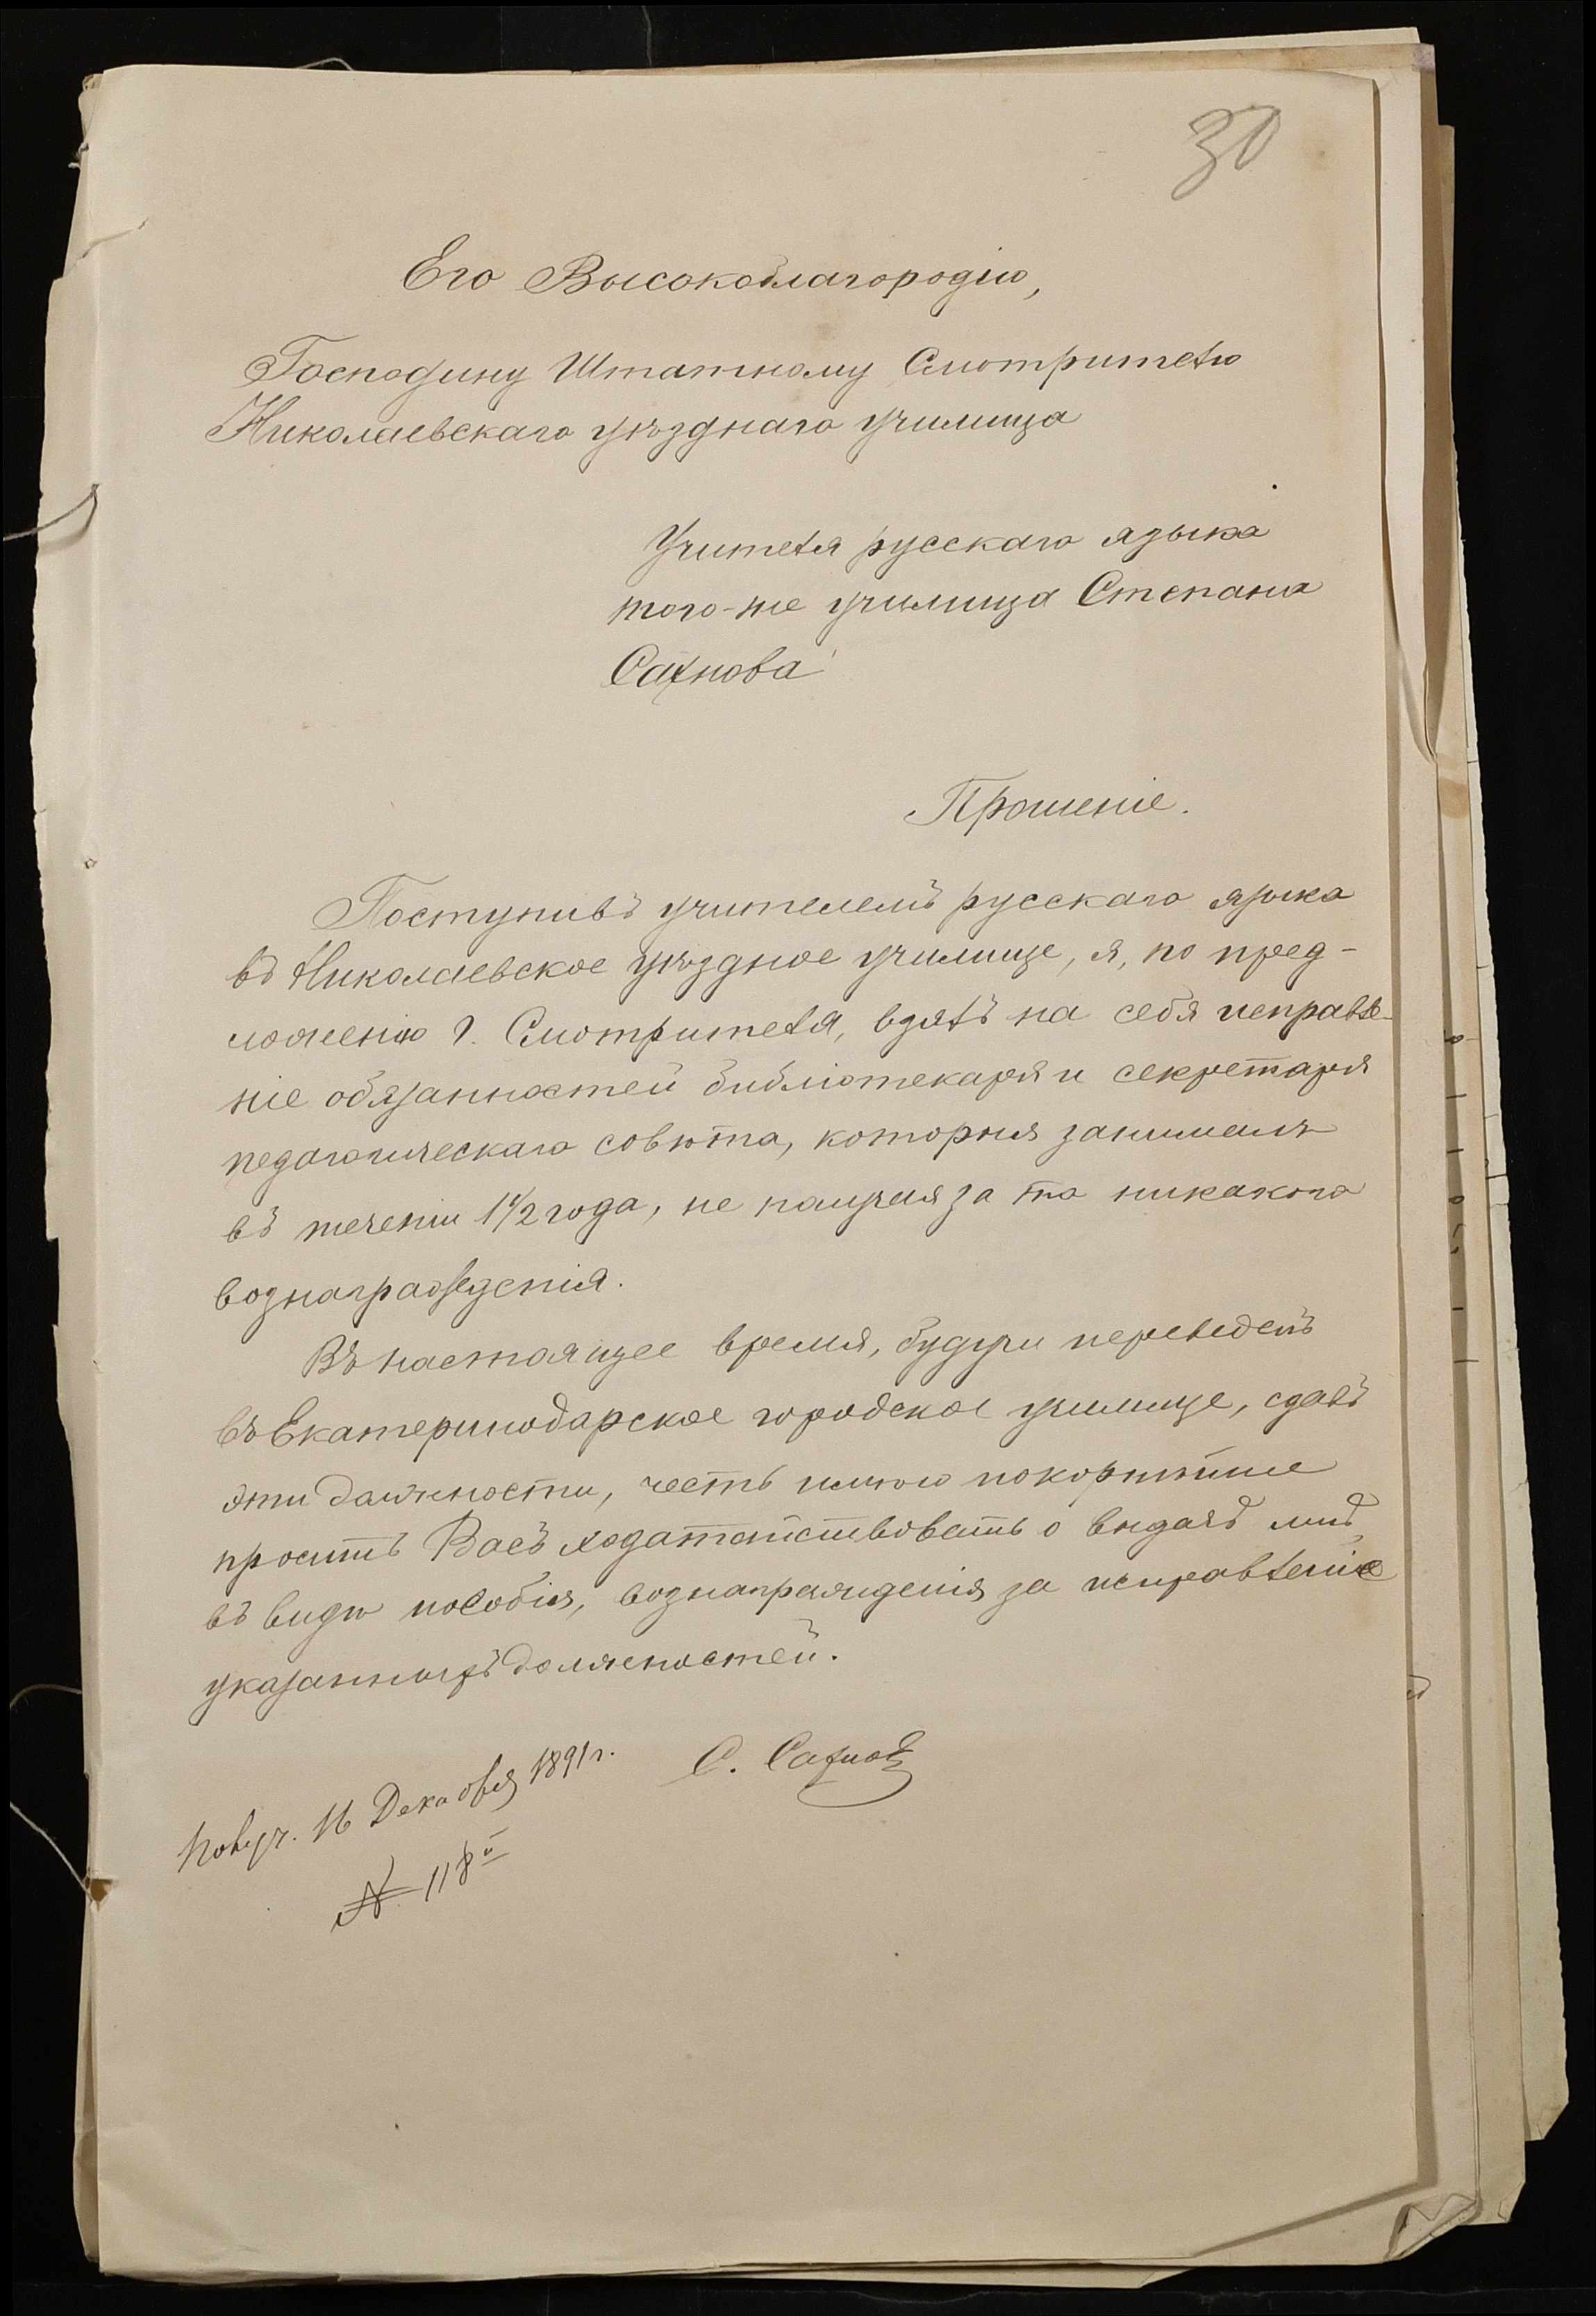 30
Его Высокоблагородію,
Господину Штатному Смотрителю
Николаевскаго уѣзднаго училища
Учителя русскаго языка
того-же училища Степана
Сахнова
Прошеніе.
Поступивъ учителемъ русскаго языка
въ Николаевское уѣздное училище, я, по пред-
ложенію г. Смотрителя, взялъ на себя исправле-
ніе обязанностей библіотекаря и секретаря
педагогическаго совѣта, которыя занималъ
въ теченіи 1 1/2 года, не получая за то никакого
вознагражденія.
Въ настоящее время, будучи переведенъ
въ Екатеринодарское городское училище, сдавъ
эти должности, честь имѣю покорнѣйше
просить Васъ ходатайствовать о выдачѣ мнѣ,
въ видѣ пособія, вознагражденія за исправленіе
указанныхъ должностей.
С. Сахновъ
Получ. 16 Декабря 1891 г.
№ 118